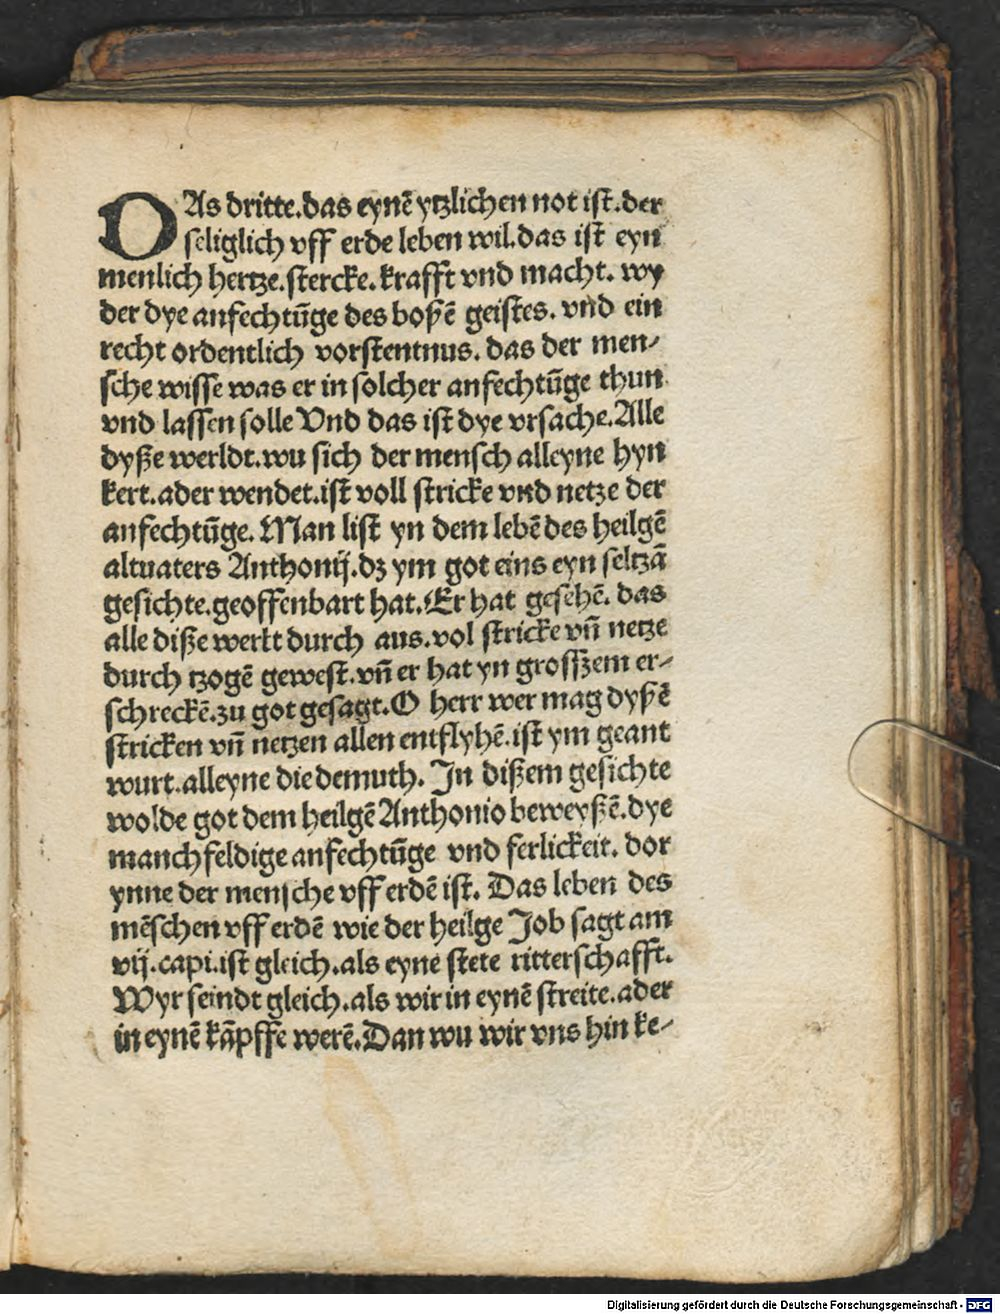 DAs dritte.das eynē ytzlichen not ist.der
seliglich vff erde leben wil.das ist eyn
menlich hertze.stercke.krafft vnd macht. wy
der dye anfechtūge des boßē geistes. vnd ein
recht ordentlich vorstentnus. das der men⸗
sche wisse was er in solcher anfechtūge thun
vnd lassen solle Vnd das ist dye vrsache.Alle
dyße werldt.wu sich der mensch alleyne hyn
kert.ader wendet.ist voll stricke vnd netze der
anfechtūge. Man list yn dem lebē des heilgē
altuaters Anthonij.dz ym got eins eyn seltzā
gesichte.geoffenbart hat.Er hat gesehē. das
alle diße werlt durch aus.vol stricke vñ netze
durch tzogē gewest.vñ er hat yn grosszem er⸗
schreckē.zu got gesagt.O herr wer mag dyßē
stricken vñ netzen allen entflyhē.ist ym geant
wurt.alleyne die demuth. In dißem gesichte
wolde got dem heilgē Anthonio beweyßē.dye
manchfeldige anfechtūge vnd ferlickeit. dor
ynne der mensche vff erdē ist. Das leben des
mēschen vff erdē wie der heilge Job sagt am
vij.capi.ist gleich.als eyne stete ritterschafft.
Wyr seindt gleich.als wir in eynē streite.ader
in eynē kāpffe werē.Dan wu wir vns hin ke⸗
Digitalisierung gefördert durch die Deutsche Forschungsgemeinschaft - DFG